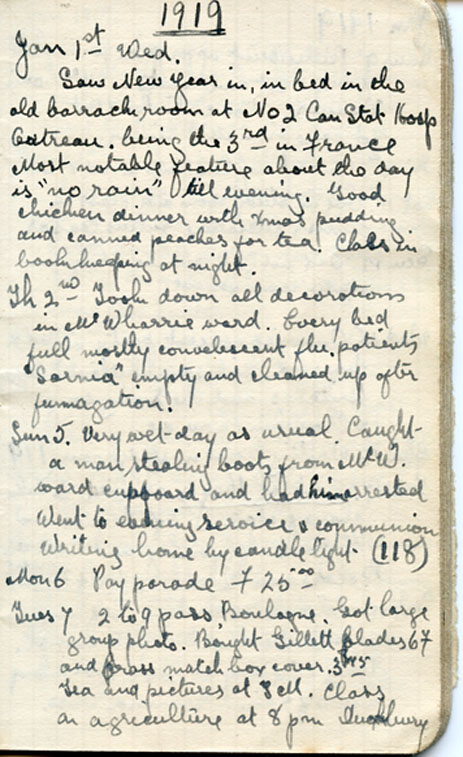 1919
Jan 1st Wed.
Saw New Year in, in bed in the
old barrack room at No 2 Can Stat Hosp
Outreau. being the 3rd in France
Most notable feature about the day
is "no rain" till evening. Good
chicken dinner with Xmas pudding
and canned peaches for tea. Class in
bookkeeping at night.
Th 2nd Took down all decorations
in McWharrie ward. Every bed
full mostly convalescent flu. patients
"Sarnia" empty and cleaned up after
fumagation.
Sun 5. Very wet day as usual. Caught
a man stealing boots from McW.
ward cupboard and had him arrested
Went to evening service & communion
Writing home by candle light. (118)
Mon 6 Pay parade F 25.00
Tues 7 2 to 9 pass Boulogne. Got large
group photo. Bought Gillett blades 67
and brass match box cover.
Tea and pictures at Class
on agriculture at 8 pm